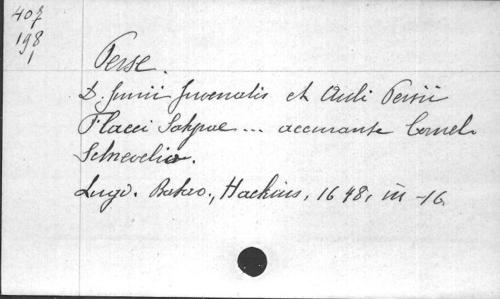 407
198
1
Perse.
D. Junii Juvenalis et Auli Persii
Flacci Satyrae ... accurante Cornel.
Schrevelio.
Lugd. Batav., Hackius, 1648, in-16.